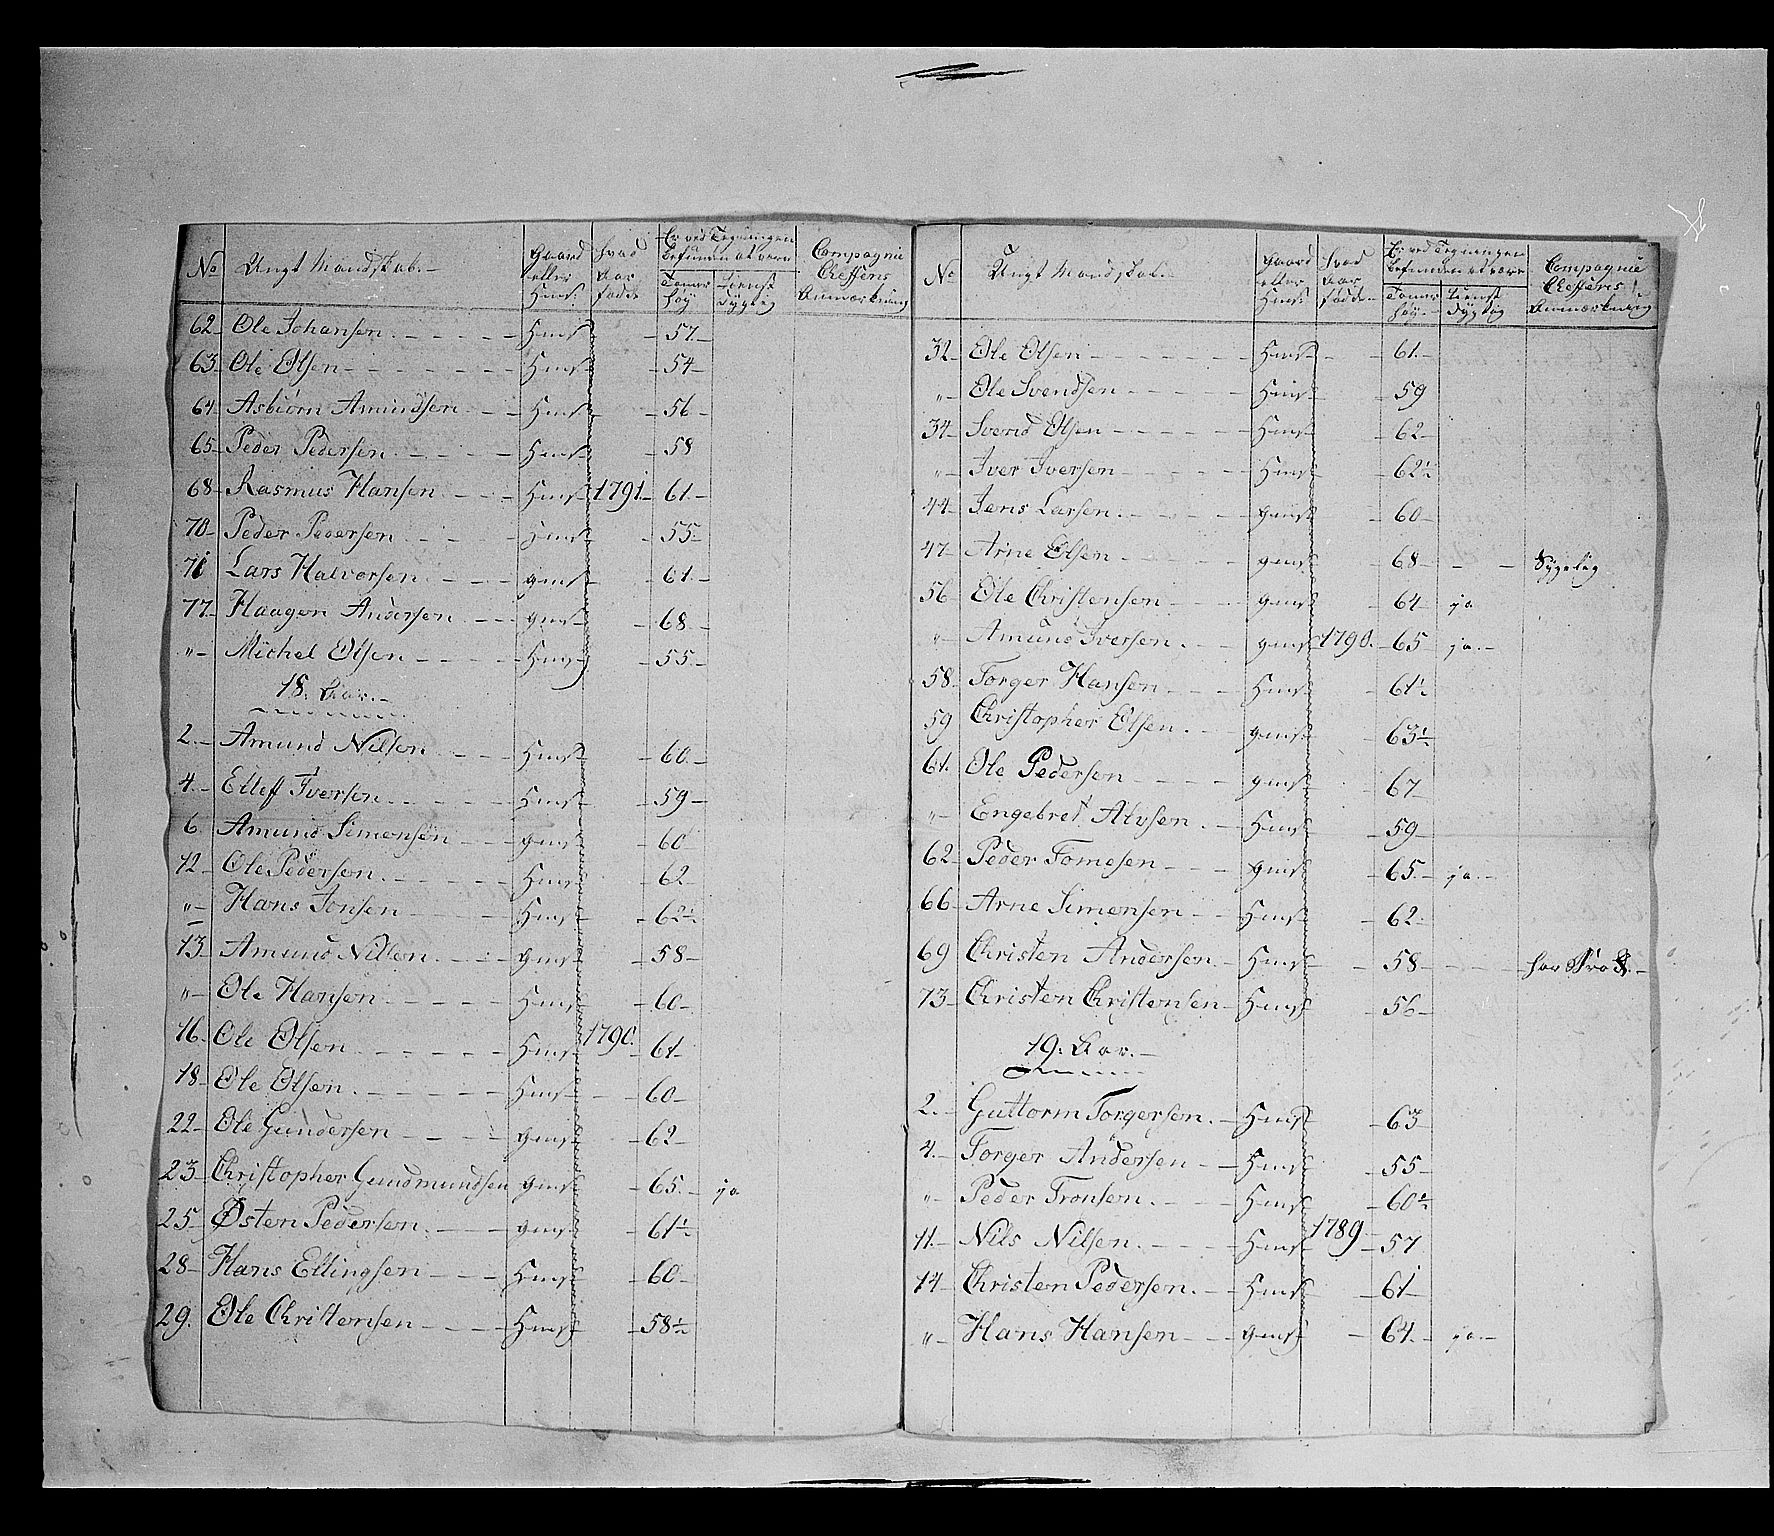 No Ungt Mandskab.- Gaard eller Huus: hvad Aar födde Er ved Tegningen befunden at være Tomer höy tienst dygtig Compagnie Cheffens Anmærkning
62- Ole Johansen. - - - - - Huus - 57-
63- Ole Olsen - - - - - - Huus - 54-
64- Asbiörn Amundsen - - - Huus - 56-
65- Peder Pedersen. - - - - Huus - 58
68- Rasmus Hansen. - - - Huus 1791- 61-
70- Peder Pedersen - - - Huus - 55-
71 Lars Halvorsen. - - - gaus - 61.-
77- Haagen Andersen. - - - gaus - 68.-
"- Michel Olsen - - - - Huus - 55-
18. Aar.-
2.- Amund Nilsen - - - Huus - 60.-
4.- Ellef Iversen. - - - - Huus - 59-
6. Amund Simensen - - gaus - 60-
12- Ole Pedersen. - - - - Huus - 62-
"- Hans Jonsen - - - - Huus - 62½
13- Amund Nilsen. - - - gaus - 58-
"- Ole Hansen - - - - Huus - 60-
16- Ole Olsen - - - - - Huus 1790. 61-
18- Ole Olsen. - - - - - Huus - 60-
22- Ole Gundersen - - - - gaus - 62-
23- Christopher Gundmundsen gaus - 65.- ja
25- Østen Pedersen. - - - gaus - 61½
28- Hans Ellingsen - - - Huus - 60-
29. Ole Christensen - - - Huus - 58½
No Ungt Mandskab.- Gaard eller Huus: hvad Aar födde- Er ved Tegningen befunden at være Tomer höy- tienst dygtig Compagnie Cheffens Anmærkning
32- Ole Olsen - - - - - Huus - 61.-
"- Ole Svendsen - - - - Huus - 59
34- Svend Olsen - - - - Huus - 62-
"- Iver Iversen - - - - Huus - 62½
44- Jens Larsen. - - - - gaus - 60-
47- Arne Olsen - - - - gaus - 68 - - - Sygelig
56- Ole Christensen - - - gaus - 64 ja
"- Amund Iversen. - - gaus 1790.- 65 ja.-
58- Torger Hansen - - - Huus - 61½
59 Christopher Olsen. - - gaus - 63½
61. Ole Pedersen - - - - gaus - 67-
"- Engebret Alvsen. - - Huus - 59-
62- Peder Tomesen - - - gaus - 65.- ja.-
66- Arne Simensen - - Huus - 62-
69 Christen Andersen.- Huus - 58 - - - har
73- Christen Christensen - Huus - 56-
19. Aar.-
2.- Guttorm Torgersen. - Huus - 63-
4.- Torger Andersen - - Huus - 55-
"- Peder Tronsen. - - - Huus - 60½
11.- Nils Nilsen. - - - Huus 1789- 57
14- Christen Pedersen. - - Huus - 61-
"- Hans Hansen - - - gaus - 64.- ja.-